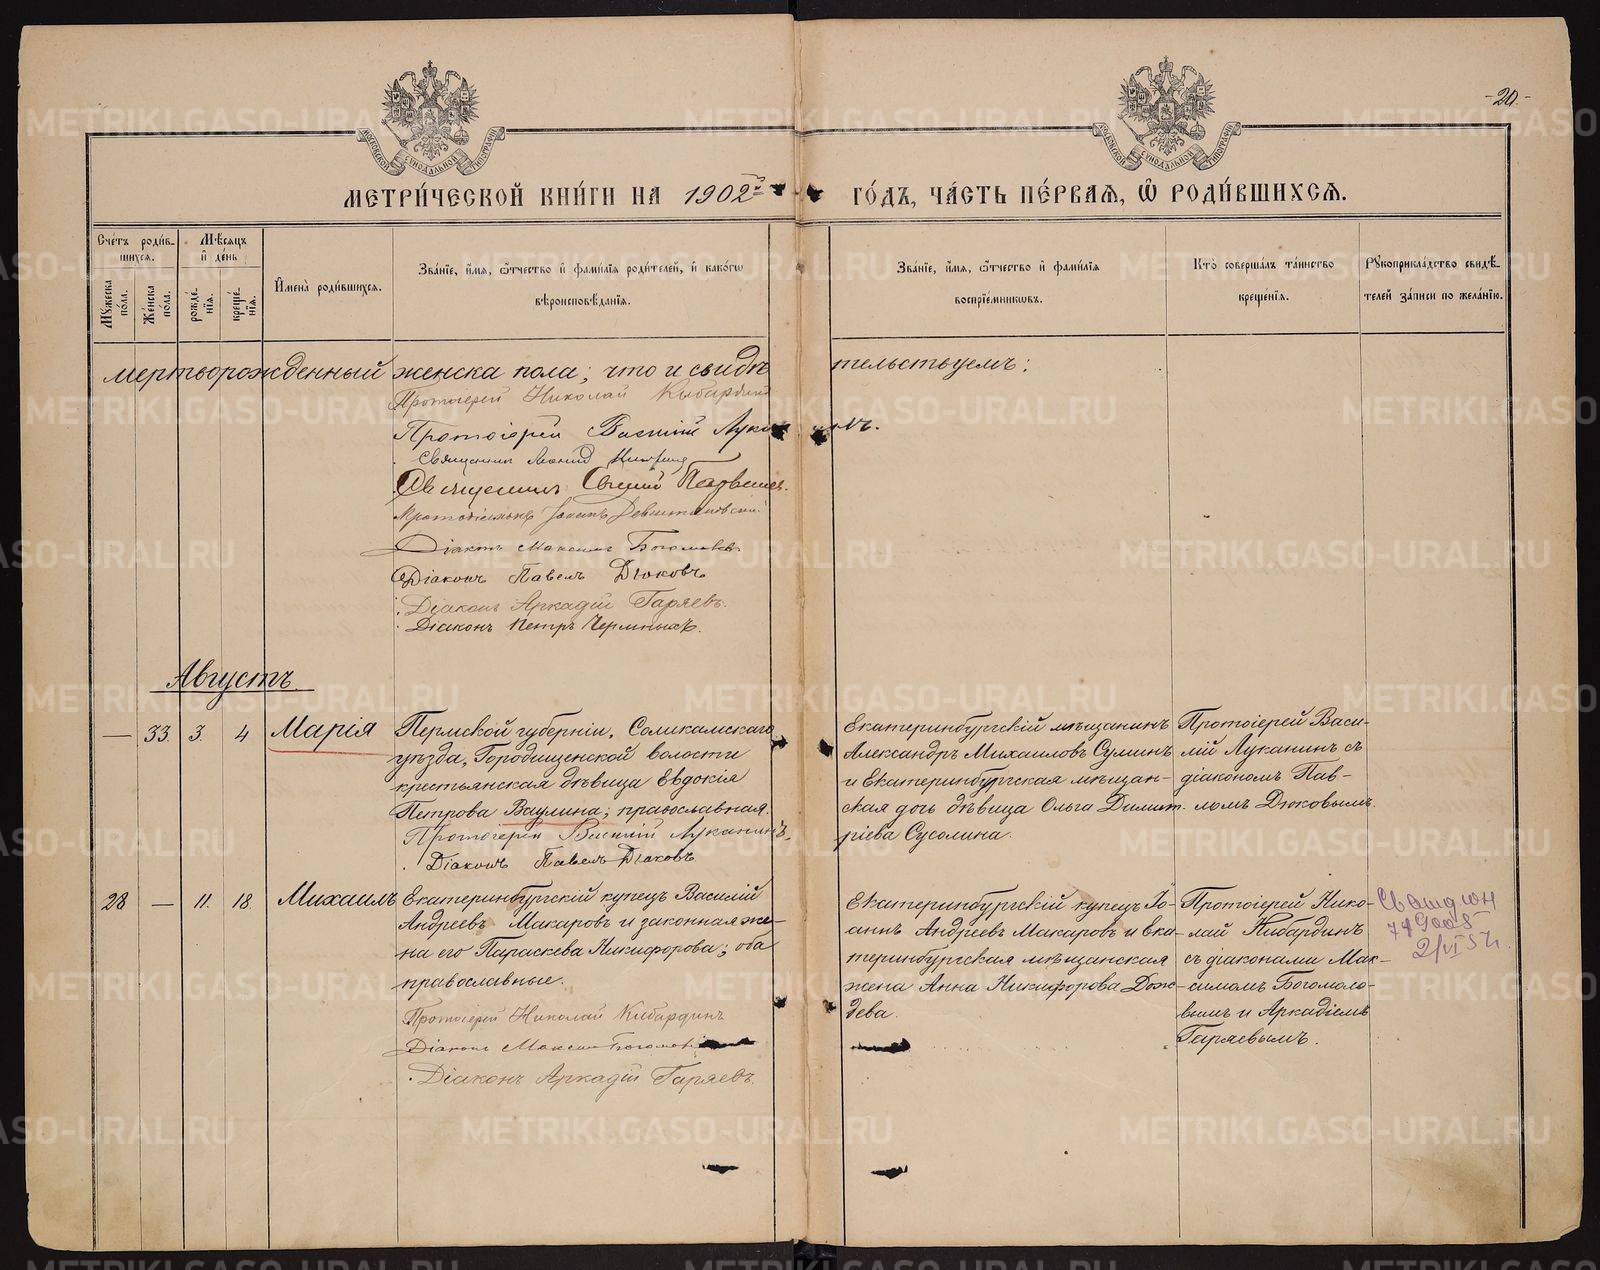 -20-
МЕТРИ́ЧЕСКОЙ КНИ́ГИ НА 1902й ГО́ДЪ, ЧА́СТЬ ПЕ́РВАЯ, Ѽ РОДИ́ВШИХСЯ.
Сче́тъ роди́вшихся.
Мꙋ́жеска по́ла.
Же́нска по́ла.
Мѣ́сяцъ и҆ де́нь
рожде́нїя.
креще́нїя.
И҆мена̀ роди́вшихся.
Зва́нїе, и҆́мя, ѻ҆́тчество и҆ фами́лїя роди́телей, и҆ како́гѡ
вѣроисповѣ́данїя.
Зва́нїе, и҆́мя, ѻ҆́тчество и҆ фами́лїя
воспрїе́мникѡвъ.
Кто̀ соверша́лъ та́инство
креще́нїя.
Рꙋкоприкла́дство свидѣ́телей за́писи по жела́нїю.
мертворожденный женска пола; что и свидѣтельствуемъ:
Протоіерей Николай Кибардинъ
Протоіерей Василій Луканинъ.
Священникъ
Священникъ
Діаконъ Максимъ Богомоловъ
Діаконъ Павелъ Дюковъ
Діаконъ Аркадій Гаряевъ.
Діаконъ Петръ Черемныхъ.
Августъ.
— 33. 3. 4 Марія
Пермской губерніи, Соликамскаго
уѣзда, Городищенской волости
крестьянская дѣвица Евдокія
Петрова Ваулина; православная.
Протоіерей Василій Луканинъ.
Діаконъ Павелъ Дюковъ
Екатеринбургскій мѣщанинъ
Александръ Михаиловъ Суминъ
и Екатеринбургская мѣщан-
ская дочь дѣвица Ольга Димит-
ріева Сусолина.
Протоіерей Васи-
лій Луканинъ съ
діакономъ Пав-
ломъ Дюковымъ.
28 — 11. 18. Михаилъ
Екатеринбургскій купецъ Василій
Андреевъ Макаровъ и законная же-
на его Параскева Никифорова; оба
православные.
Протоіерей Николай Кибардинъ
Діаконъ Максимъ Богомоловъ
Діаконъ Аркадій Гаряевъ.
Екатеринбургскій купецъ Іо-
аннъ Андреевъ Макаровъ и Ека-
теринбургская мѣщанская
жена Анна Никифорова Дож-
дева.
Протоіерей Нико-
лай Кибардинъ
съ діаконами Мак-
симомъ Богомоло-
вымъ и Аркадіемъ
Гаряевымъ.
METRIKI.GASO-URAL.RU